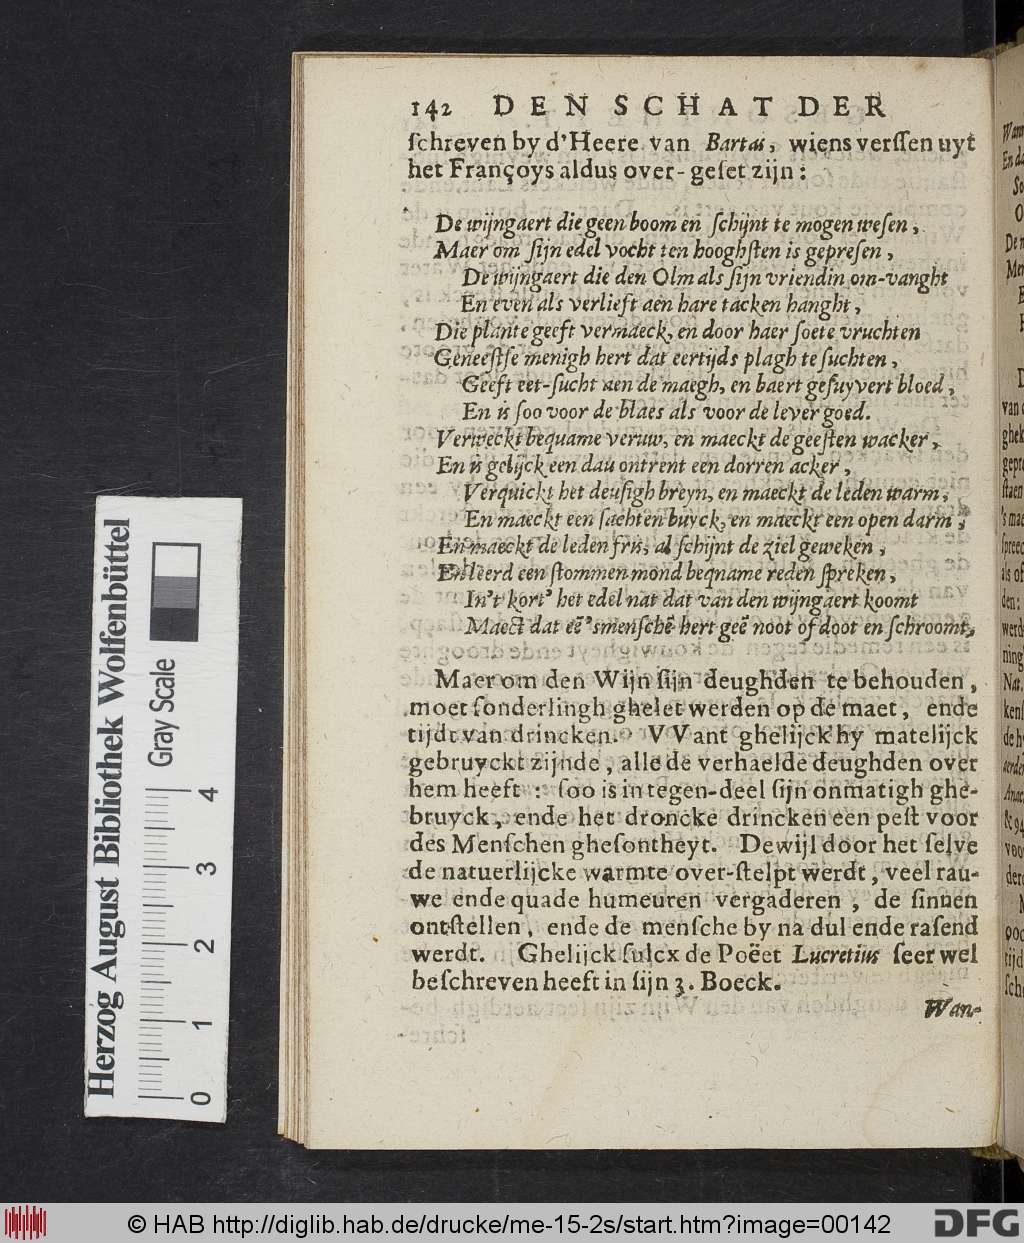 142 DEN SCHAT DER
ſchreven by d'Heere van Bartas, wiens verſſen uyt
het Françoys aldus over-geſet zijn:
De wijngaert die geen boom en ſchijnt te mogen weſen,
Maer om ſijn edel vocht ten hooghſten is gepreſen,
De wijngaert die den Olm als ſijn vriendin om-vanght
En even als verlieft aen hare tacken hanght,
Die plante geeft vermaeck, en door haer ſoete vruchten
Geneeſtſe menigh hert dat eertijds plagh te ſuchten,
Geeft eet-ſucht aen de maegh, en baert geſuyvert bloed,
En is ſoo voor de blaes als voor de lever goed.
Verweckt bequame veruw, en maeckt de geeſten wacker,
En is gelijck een dau ontrent een dorren acker,
Verquickt het deuſigh breyn, en maeckt de leden warm,
En maeckt een ſachten buyck, en maeckt een open darm,
En maeckt de leden fris, al ſchijnt de ziel geweken,
En leerd een ſtommen mond beqname reden ſpreken,
In't kort' het edel nat dat van den wijngaert koomt
Maect dat eē 'smenſchē hert geē noot of doot en ſchroomt,
Maer om den Wijn ſijn deughden te behouden,
moet ſonderlingh ghelet werden op de maet, ende
tijdt van drincken. VVant ghelijck hy matelijck
gebruyckt zijnde, alle de verhaelde deughden over
hem heeft: ſoo is in tegen-deel ſijn onmatigh ghe-
bruyck, ende het droncke drincken een peſt voor
des Menſchen gheſontheyt. Dewijl door het ſelve
de natuerlijcke warmte over-ſtelpt werdt, veel rau-
we ende quade humeuren vergaderen, de ſinnen
ontſtellen, ende de menſche by na dul ende raſend
werdt. Ghelijck ſulcx de Poëet Lucretius ſeer wel
beſchreven heeft in ſijn 3. Boeck.
Wan-
Herzog August Bibliothek Wolfenbüttel
Gray Scale
0 1 2 3 4
© HAB http://diglib.hab.de/drucke/me-15-2s/start.htm?image=00142
DFG